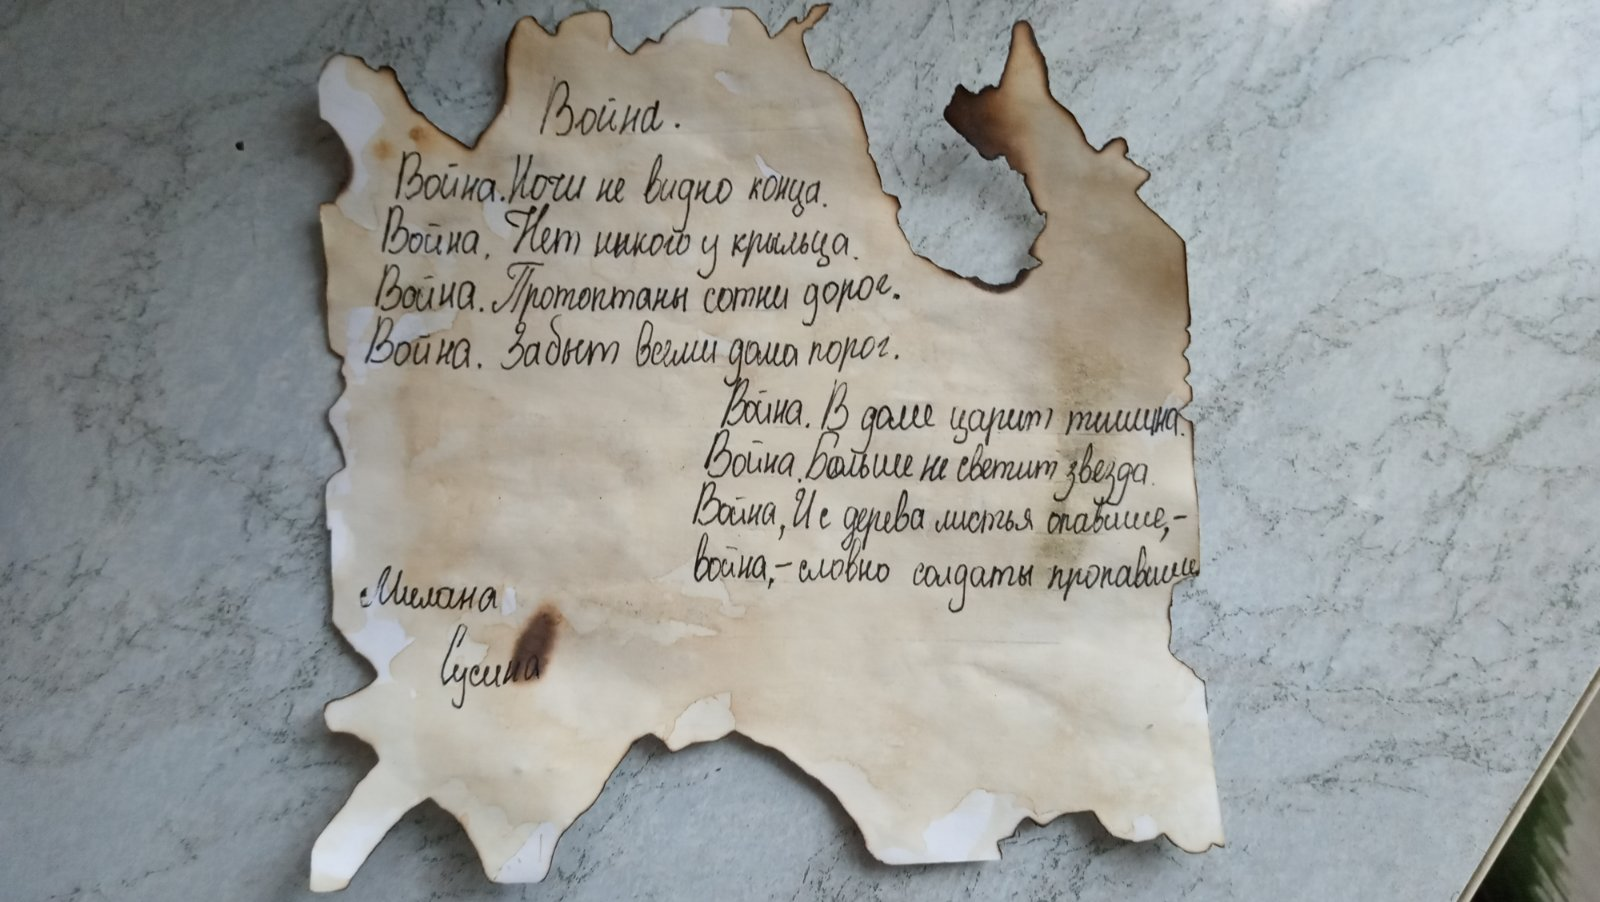 Война.
Война. Ночи не видно конца.
Война. Нет никого у крыльца.
Война. Протоптаны сотни дорог.
Война. Забыт всеми дома порог.
Война. В доме царит тишина.
Война. Больше не светит звезда.
Война, И с дерева листья опавшие,-
война,- словно солдаты пропавшие
Милана
Сусина